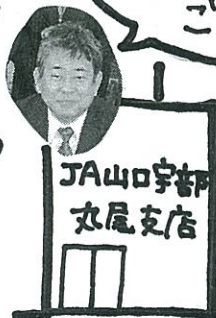 こ
JA山口宇部
丸尾支店